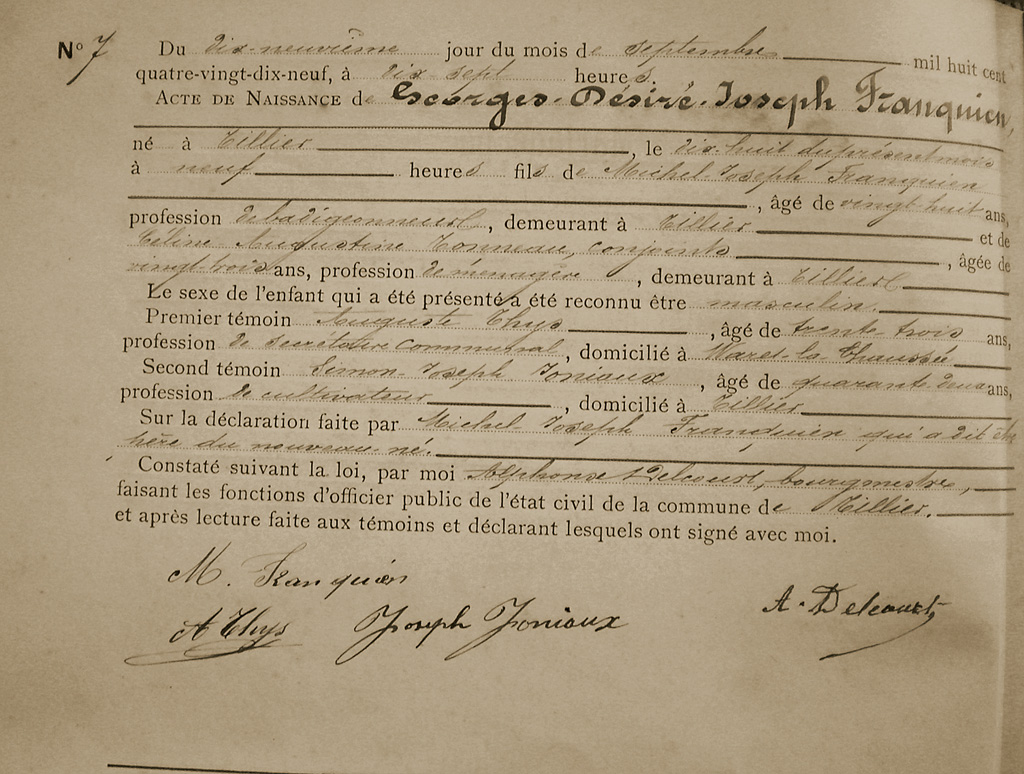 Nº 7 Du dix-neuvième jour du mois de septembre mil huit cent
quatre-vingt-dix-neuf, à dix-sept heures.
ACTE DE NAISSANCE de Georges-Désiré-Joseph Franquien,
né à Tillier, le dix-huit du présent mois
à neuf heures fils de Michel Joseph Franquien
, âgé de vingt huit ans,
profession de badigeonneur, demeurant à Tillier et de
Céline Augustine Tonneau, conjoints, âgée de
vingt trois ans, profession de ménagère, demeurant à Tillier
Le sexe de l'enfant qui a été présenté a été reconnu être masculin.
Premier témoin Auguste Thys, âgé de trente trois ans,
profession de secrétaire communal, domicilié à Waret-la-Chaussée
Second témoin Simon-Joseph Joniaux, âgé de quarante deux ans,
profession de cultivateur, domicilié à Tillier
Sur la déclaration faite par Michel Joseph Franquien qui a dit être
père du nouveau-né.
Constaté suivant la loi, par moi Alphonse Delcourt, bourgmestre,
faisant les fonctions d'officier public de l'état civil de la commune de Tillier.
et après lecture faite aux témoins et déclarant lesquels ont signé avec moi.
M. Franquien
A Thys Joseph Joniaux A. Delcourt